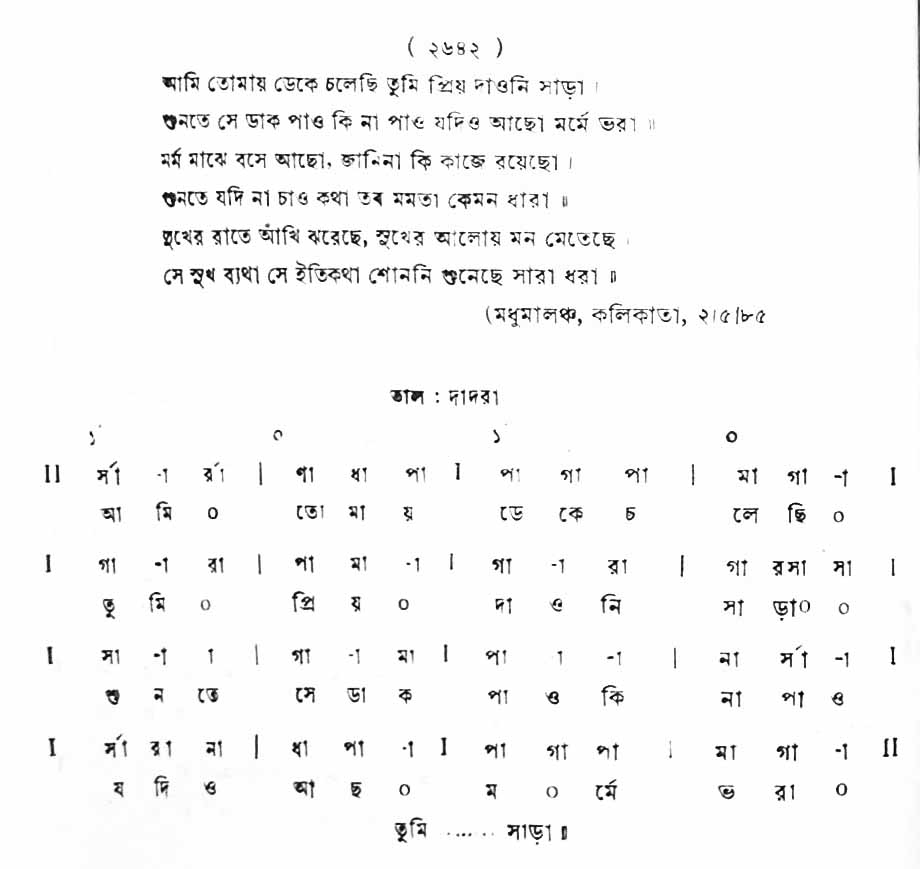 ( ২৬৪২ )
আমি তোমায় ডেকে চলেছি তুমি প্রিয় দাওনি সাড়া ।
শুনতে সে ডাক পাও কি না পাও যদিও আছো মর্মে ভরা ॥
মর্ম মাঝে বসে আছো, জানিনা কি কাজে রয়েছো ।
শুনতে যদি না চাও কথা তব মমতা কেমন ধারা ॥
দুখের রাতে আঁখি ঝরেছে, সুখের আলোয় মন মেতেছে ।
সে সুখ ব্যথা সে ইতিকথা শোননি শুনেছে সারা ধরা ॥
(মধুমালঞ্চ, কলিকাতা, ২।৫।৮৫
তাল : দাদরা
১ ০ ১ ০
II র্সা -া র্রা | ণা ধা পা I পা গা পা | মা গা -া I
আ মি ০ তো মা য় ডে কে চ লে ছি ০
I গা -া রা | পা মা -া I গা -া রা | গা রসা সা I
তু মি ০ প্রি য় ০ দা ও নি সা ড়া০ ০
I সা -া া | গা -া মা I পা া -া | না র্সা -া I
শু ন তে সে ডা ক পা ও কি না পা ও
I র্সা রা না | ধা পা -া I পা গা পা | মা গা -া II
য দি ও আ ছ ০ ম ০ র্মে ভ রা ০
তুমি ...... সাড়া ॥